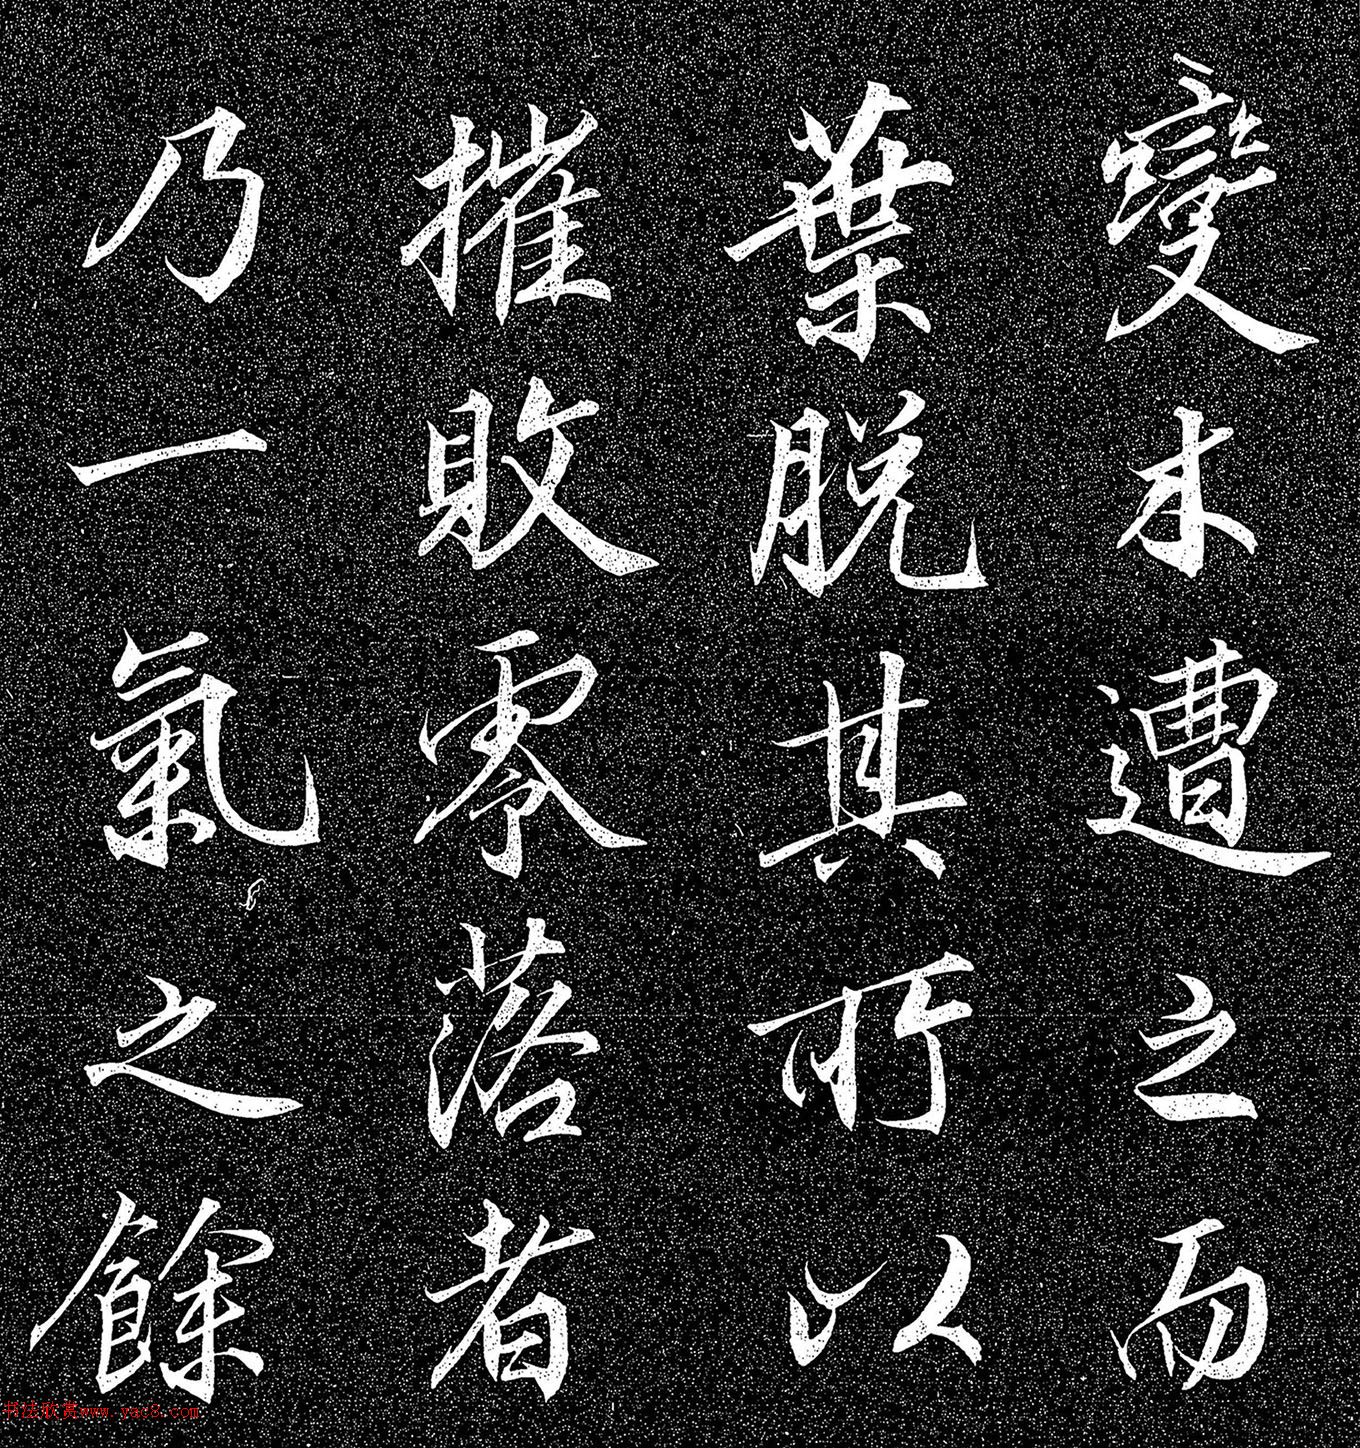 變木遭之而
葉脫其所以
摧敗零落者
乃一氣之餘
书法欣赏www.yac8.com